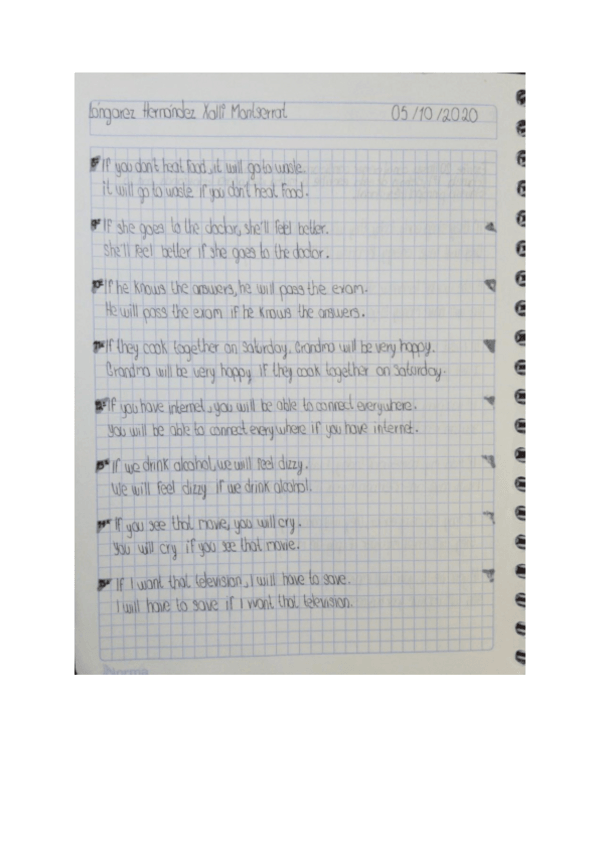 Lóngarez Hernández Xalli Montserrat 05/10/2020
If you don't heat food, it will go to waste.
it will go to waste if you don't heat food.
If she goes to the doctor, she'll feel better.
She'll feel better if she goes to the doctor.
If he knows the answers, he will pass the exam.
He will pass the exam if he knows the answers.
If they cook together on saturday. Grandma will be very happy.
Grandma will be very happy If they cook together on saturday.
If you have internet, you will be able to connect everywhere.
You will be able to connect everywhere if you have internet.
If we drink alcohol, we will feel dizzy.
We will feel dizzy if we drink alcohol.
If you see that movie, you will cry.
You will cry if you see that movie.
If I want that television, I will have to save.
I will have to save if I want that television.
Norma